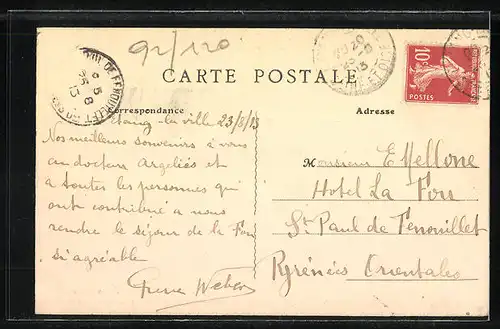 92/120
CARTE POSTALE
Correspondance
Adresse
10c
POSTES
Etang-la-ville 23/8/13
Nos meilleurs souvenirs à vous
au docteur Argeliés et
a toutes les personnes qui
ont contribué a nous
rendre le séjour de la Fou
si agréable
Weber
Monsieur E
Hotel La Fou
St Paul de Fenouillet
Pyrénées Orientales